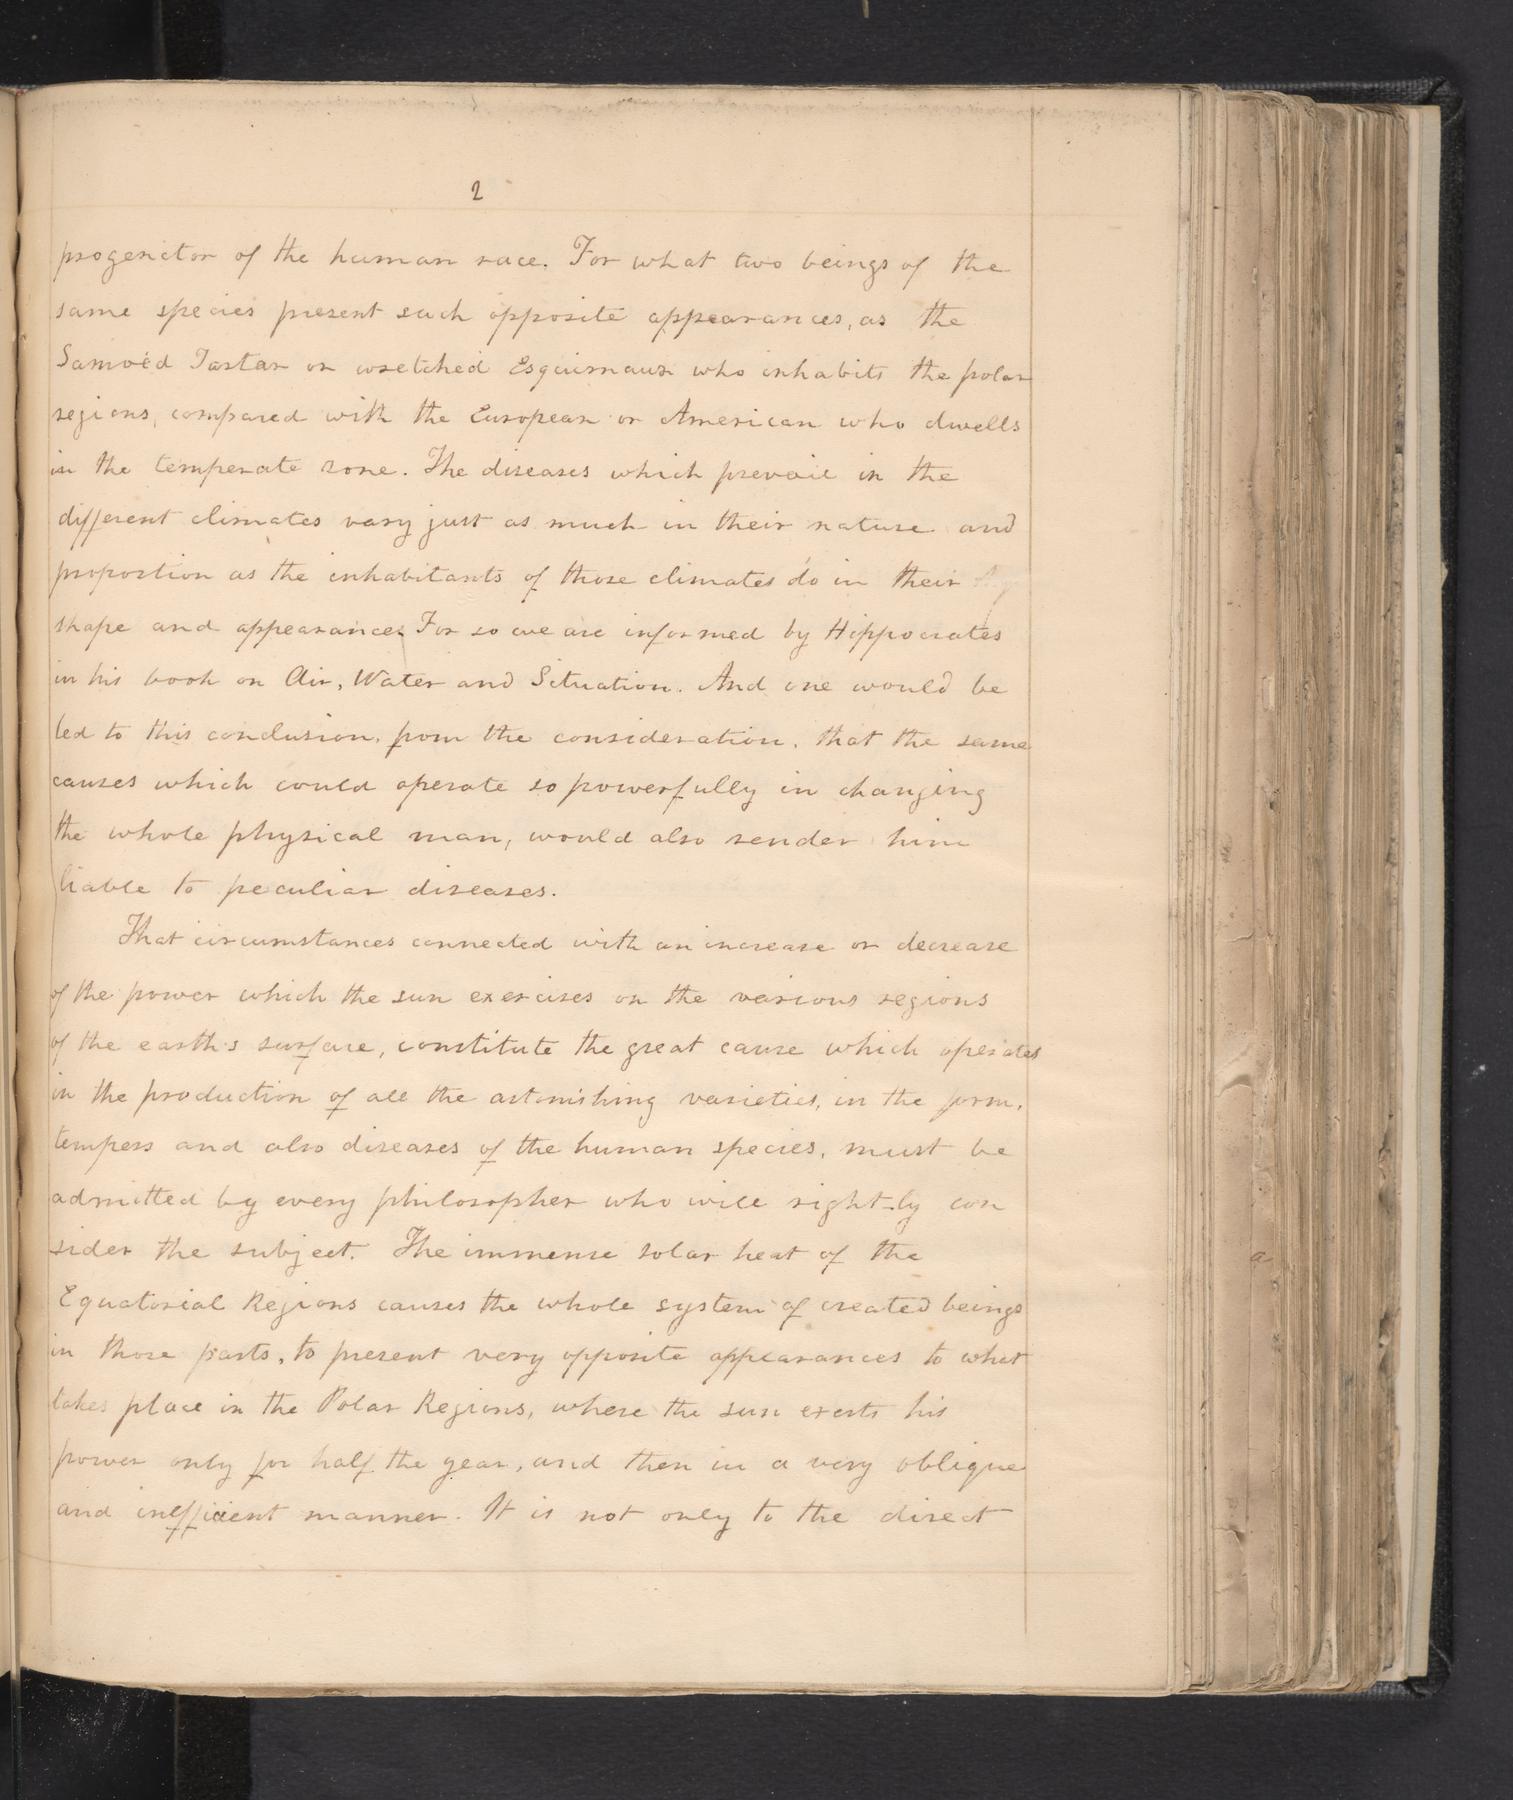 2
progenitor of the human race. For what two beings of the
same species present such opposite appearances, as the
Samoëd Tartar or wretched Esquimaux who inhabits the polar
regions, compared with the European or American who dwells
in the temperate zone. The diseases which prevail in the
different climates vary just as much in their nature and
proportion as the inhabitants of those climates do in their
shape and appearances. For so we are informed by Hippocrates
in his book on Air, Water and Situation. And one would be
led to this conclusion, from the consideration, that the same
causes which could operate so powerfully in changing
the whole physical man, would also render him
liable to peculiar diseases.
That circumstances connected with an increase or decrease
of the power which the sun exercises on the various regions
of the earth's surface, constitute the great cause which operates
in the production of all the astonishing varieties, in the form,
tempers and also diseases of the human species, must be
admitted by every philosopher who will rightly con
sider the subject. The immense solar heat of the
Equatorial Regions causes the whole system of created beings
in those parts, to present very opposite appearances to what
takes place in the Polar Regions, where the sun exerts his
power only for half the year, and then in a very oblique
and inefficient manner. It is not only to the direct